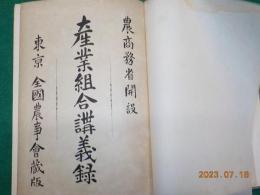 農商務省開設
産業組合講義録
東京 全國農事會藏版
2023.07.18